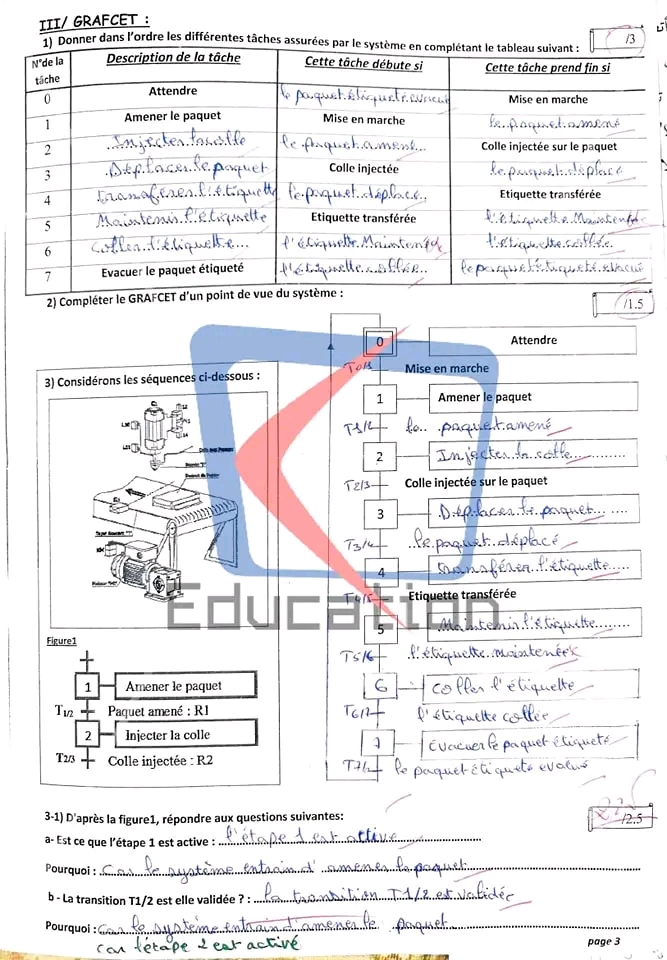 III/ GRAFCET :
1) Donner dans l'ordre les différentes tâches assurées par le système en complétant le tableau suivant :
/3
N°de la tâche
Description de la tâche
Cette tâche débute si
Cette tâche prend fin si
0
Attendre
le paquet étiqueté évacué
Mise en marche
1
Amener le paquet
Mise en marche
le paquet amené
2
Injecter la colle
le paquet amené
Colle injectée sur le paquet
3
Déplacer le paquet
Colle injectée
le paquet déplacé
4
transférer l'étiquette
le paquet déplacé
Etiquette transférée
5
Maintenir l'étiquette
Etiquette transférée
l'étiquette Maintenée
6
Coller l'étiquette
l'étiquette Maintenée
l'étiquette collée
7
Evacuer le paquet étiqueté
l'étiquette collée
le paquet étiqueté évacué
2) Compléter le GRAFCET d'un point de vue du système :
/1.5
0
Attendre
T0/1
Mise en marche
1
Amener le paquet
T1/2
le paquet amené
2
Injecter la colle
T2/3
Colle injectée sur le paquet
3
Déplacer le paquet
T3/4
le paquet déplacé
4
transférer l'étiquette
T4/5
Etiquette transférée
5
Maintenir l'étiquette
T5/6
l'étiquette maintenée
6
coller l'étiquette
T6/7
l'étiquette collée
7
évacuer le paquet étiqueté
le paquet étiqueté evacué
3) Considérons les séquences ci-dessous :
Education
Figure1
1
Amener le paquet
T1/2
Paquet amené : R1
2
Injecter la colle
T2/3
Colle injectée : R2
3-1) D'après la figure1, répondre aux questions suivantes:
/2.5
a- Est ce que l'étape 1 est active : l'étape 1 est active
Pourquoi : Car le système entrain d'amener le paquet
b - La transition T1/2 est elle validée ? : la transition T1/2 est validée
Pourquoi : car le système entrain d'amener le paquet
car l'étape 1 est activé
page 3